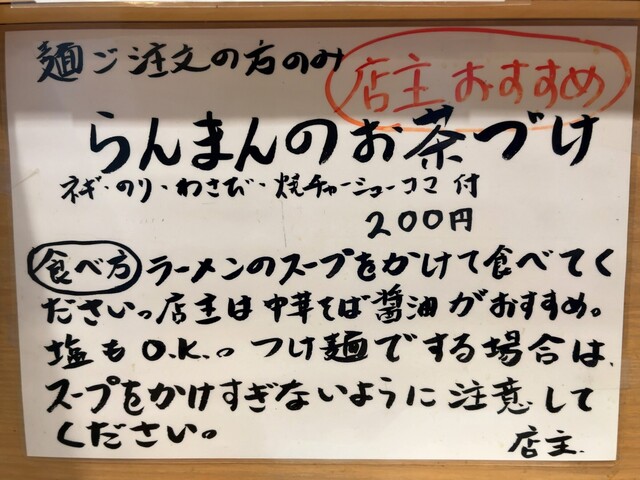 麺ご注文の方のみ
店主おすすめ
らんまんのお茶づけ
ネギ・のり・わさび・焼チャーシューコマ付
200円
食べ方 ラーメンのスープをかけて食べてく
ださいっ店主は中華そば醤油がおすすめ。
塩もO.K.。つけ麺でする場合は、
スープをかけすぎないように注意して
ください。
店主.